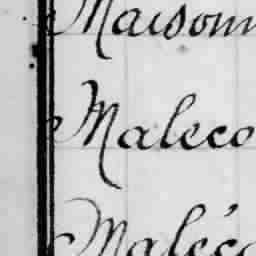 Maison
Maleco
Maléc